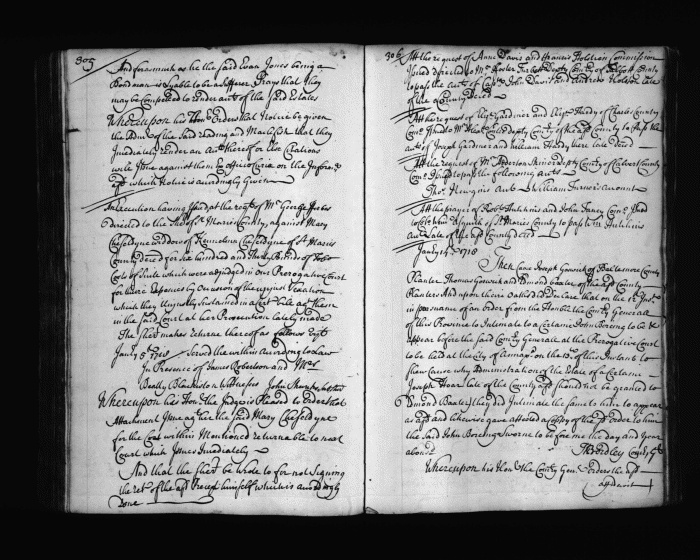 305
And forasmuch as he the said Evan Jones being a
Bondsman is lyable to be a sufferer Prays that they
may be Compelled to render acct of the said Estates
Whereupon his Honr Orders that Notice be given
the Admrs of the said and that they
Imediately render an Acct thereof or Else Citations
will Issue against them Ex Officio Curia on the Inform
afd which Notice is accordingly Given
An Execution having Issued at the reqst of Mr George
directed to the Sherf of St Maries County, against Mary
Cheseldyne widdow of Kenelm Cheseldyne of St Maries
County decd for Six hundred and Thirty Pounds of Tobo
Costs of Suite which were adjudged in our Prerogative Court
for their Expences by Occasion of the unjust Vexation
which they unjustly Sustained in a Certn Libel agt them
in the said Court at her Prosecution lately made
The Sherf makes returne thereof as follows Vizt
Janry 5th 1718 Served the within According to Law
In Presence of James Robertson and
Blakiston Wittnesses John
Whereupon his Honr the Judge is Pleased to Order that
Attachment Issue agt her the said Mary Cheseldyne
for the Cost within Mentioned returnable to next
Court which Issues Imediately
And that the Sherf be wrote to for not Signing
the ret of the afd Precept himself which is accordingly
Done
306 At the request of Anne Davis and Francis Holstein Commission
Issued directed to Mr Foster Turbutt Depty Comry of Talbott County
to pass the accts of Capt John Davis and Andrew late
of the County Decd
At the request of Elizt Gardiner and Elizt Thirdy of Charles County
Comn Issued to Mr Depty Comry of the afd County to Pass the
accts of Joseph Gardiner and William Thirdy there late Decd
At the request of Mr Alderton Depty Comry of Calvert County
Comn Issued to pass the following accts
Thos Acct William Turners Account
At the prayer of Robt Hutchins and John Comn Issued
to of St Maries County to pass
Acct late of the afd County decd
January 5th 1718
Then Came Joseph of Baltemore County
Planter Thomas and Edmond Baxter of the afd County
Planter And upon their Oaths did Declare that on the
in persuance of an order from the Honble the Comry Generall
of this Province to Intimate to a Certain John Boreing to be &
appear before the said Comry Generall at the Prerogative Court
to be held at the City of Annapos on the 13th of this Instant to
Shew Cause why Administration of the Estate of a Certaine
Joseph Hoar late of the County afd should not be granted to
Edmond Baxter they did Intimate the same to him to appear
as afd and likewise gave attested a Coppy of the sd Order to him
the said John Boreing Sworne to before me the day and year
above
Whereupon his Honr the Comry Genl Orders the afd
affidavit